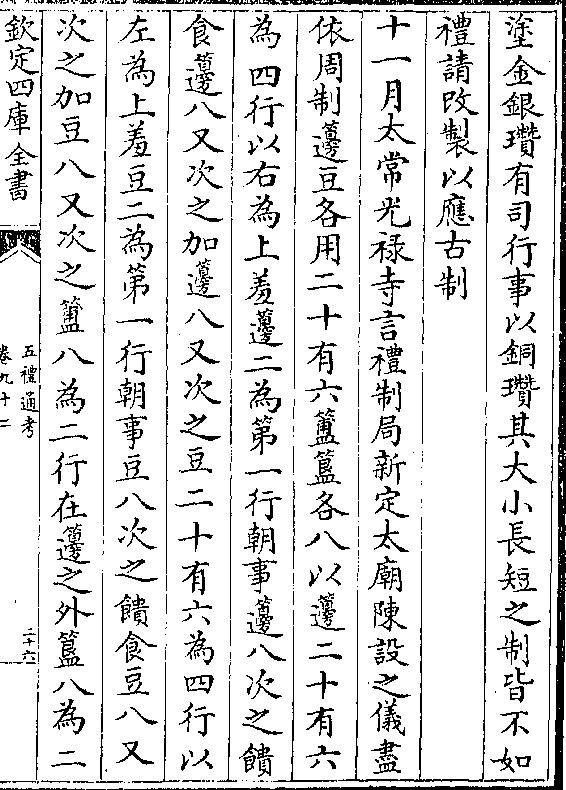 塗金銀瓚有司行事以銅瓚其大小長短之制皆不如
禮請改製以應古制
十一月太常光禄寺言禮制局新定太廟陳設之儀盡
依周制籩豆各用二十有六簠簋各八以籩二十有六
為四行以右為上羞籩二為第一行朝事籩八次之饋
食籩八又次之加籩八又次之豆二十有六為四行以
左為上羞豆二為第一行朝事豆八次之饋食豆八又
次之加豆八又次之簠八為二行在籩之外簋八為二
欽定四庫全書
五禮通考
卷九十二
二十六